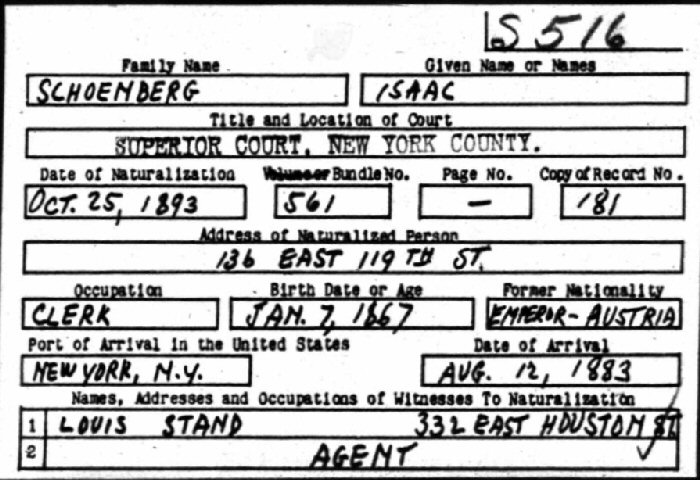 S 516
Family Name Given Name or Names
SCHOENBERG ISAAC
Title and Location of Court
SUPERIOR COURT, NEW YORK COUNTY.
Date of Naturalization Bundle No. Page No. Copy of Record No.
OCT. 25, 1893 561 — 181
Address of Naturalized Person
136 EAST 119 TH ST.
Occupation Birth Date or Age Former Nationality
CLERK JAN. 7, 1867 EMPEROR-AUSTRIA
Port of Arrival in the United States Date of Arrival
NEW YORK, N.Y. AUG. 12, 1883
Names, Addresses and Occupations of Witnesses To Naturalization
1 LOUIS STAND 332 EAST HOUSTON ST.
2 AGENT